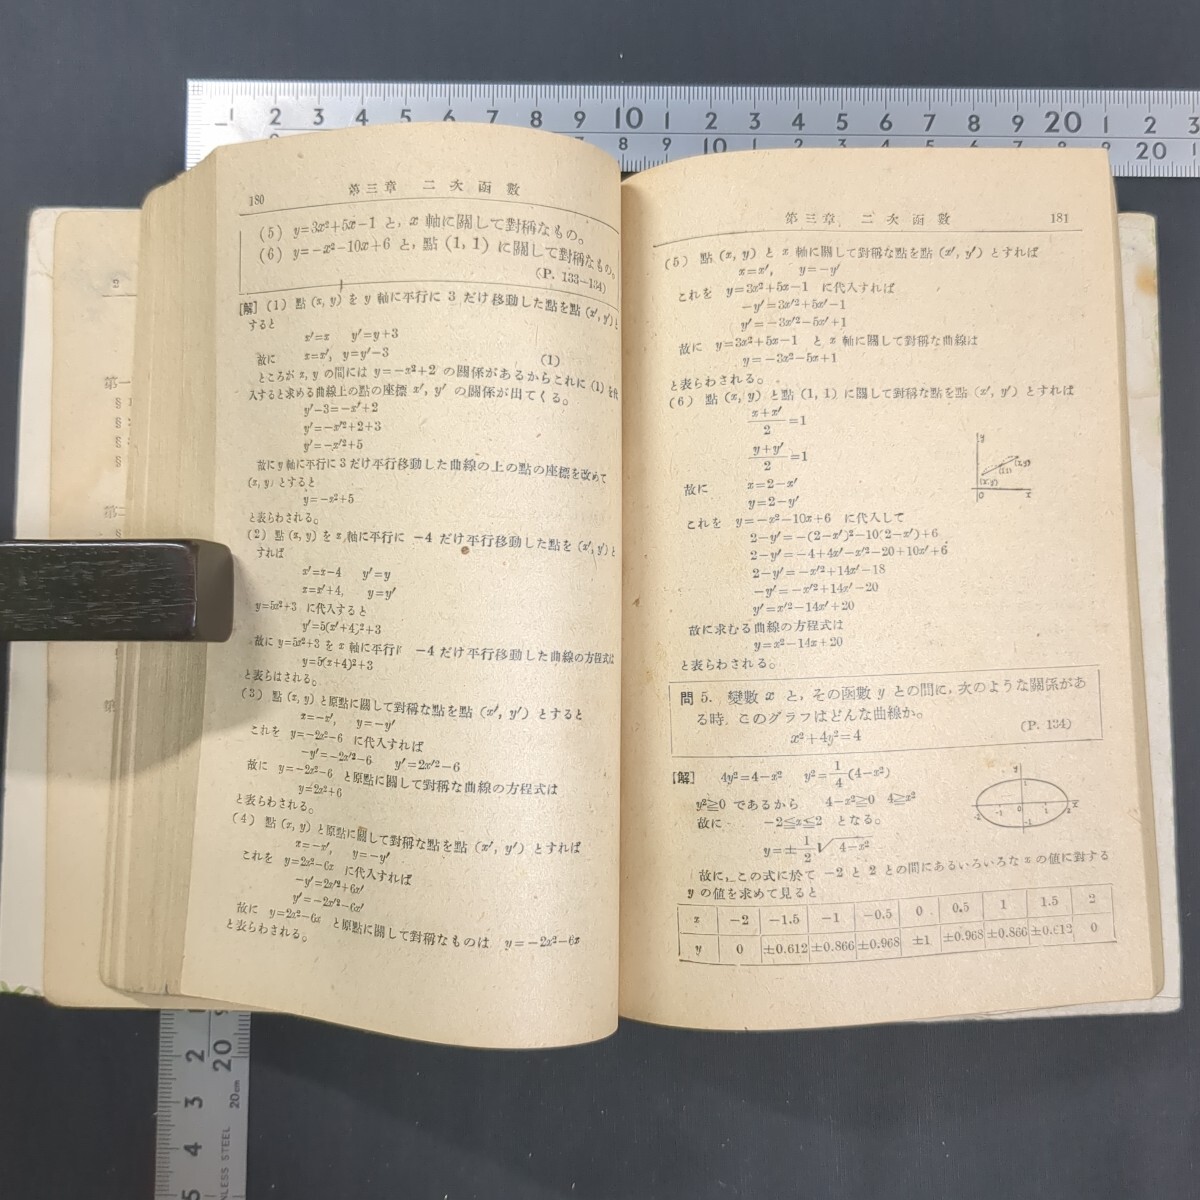 1 2 3 4 5 6 7 8 9 10 1 2 3 4 5 6 7 8 9 20 1 2 3
8 9 10 1 2 3 4 5 6 7 8 9 20 1
180
第三章 二次函數
(5) y=3x²+5x−1 と, x 軸に關して對稱なもの。
(6) y=−x²−10x+6 と, 點 (1, 1) に關して對稱なもの。
(P. 133−134)
[解] (1) 點 (x, y) を y 軸に平行に 3 だけ移動した點を點 (x′, y′) と
すると
x′=x y′=y+3
故に x=x′, y=y′−3 (1)
ところが x, y の間には y=−x²+2 の關係があるからこれに (1) を代
入すると求める曲線上の點の座標 x′, y′ の關係が出てくる。
y′−3=−x′+2
y′=−x′²+2+3
y′=−x′²+5
故に y 軸に平行に 3 だけ平行移動した曲線の上の點の座標を改めて
(x, y) とすると
y=−x²+5
と表らわされる。
(2) 點 (x, y) を x 軸に平行に −4 だけ平行移動した點を (x′, y′) と
すれば
x′=x−4 y′=y
x=x′+4, y=y′
y=5x²+3 に代入すると
y′=5(x′+4)²+3
故に y=5x²+3 を x 軸に平行に −4 だけ平行移動した曲線の方程式は
y=5(x+4)²+3
と表らはされる。
(3) 點 (x, y) と原點に關して對稱な點を點 (x′, y′) とすると
x=−x′, y=−y′
これを y=−2x²−6 に代入すれば
−y′=−2x′²−6 y′=2x′²−6
故に y=−2x²−6 と原點に關して對稱な曲線の方程式は
y=2x²+6
と表らわされる。
(4) 點 (x, y) と原點に關して對稱な點を點 (x′, y′) とすれば
x=−x′, y=−y′
これを y=2x²−6x に代入すれば
−y′=2x′²+6x′
y′=−2x′²−6x′
故に y=2x²−6x と原點に關して對稱なものは y=−2x²−6x
と表らわされる。
第三章 二次函數
181
(5) 點 (x, y) と x 軸に關して對稱な點を點 (x′, y′) とすれば
x=x′, y=−y′
これを y=3x²+5x−1 に代入すれば
−y′=3x′²+5x′−1
y′=−3x′²−5x′+1
故に y=3x²+5x−1 と x 軸に關して對稱な曲線は
y=−3x²−5x+1
と表らわされる。
(6) 點 (x, y) と點 (1, 1) に關して對稱な點を點 (x′, y′) とすれば
(x+x′)/2=1
(y+y′)/2=1
故に x=2−x′
y=2−y′
これを y=−x²−10x+6 に代入して
2−y′=−(2−x′)²−10(2−x′)+6
2−y′=−4+4x′−x′²−20+10x′+6
2−y′=−x′²+14x′−18
−y′=−x′²+14x′−20
y′=x′²−14x′+20
故に求むる曲線の方程式は
y=x²−14x+20
と表らわされる。
問 5. 變數 x と, その函數 y との間に, 次のような關係があ
る時, このグラフはどんな曲線か。 (P. 134)
x²+4y²=4
[解] 4y²=4−x² y²=1/4(4−x²)
y²≧0 であるから 4−x²≧0 4≧x²
故に −2≦x≦2 となる。
y=±1/2√4−x²
故に, この式に於て −2 と 2 との間にあるいろいろな x の値に對する
y の値を求めて見ると
x −2 −1.5 −1 −0.5 0 0.5 1 1.5 2
y 0 ±0.612 ±0.866 ±0.968 ±1 ±0.968 ±0.866 ±0.612 0
2
第一
§
§
§
§
第二
第
2 20
3 20cm
4
5
NLESS STEEL